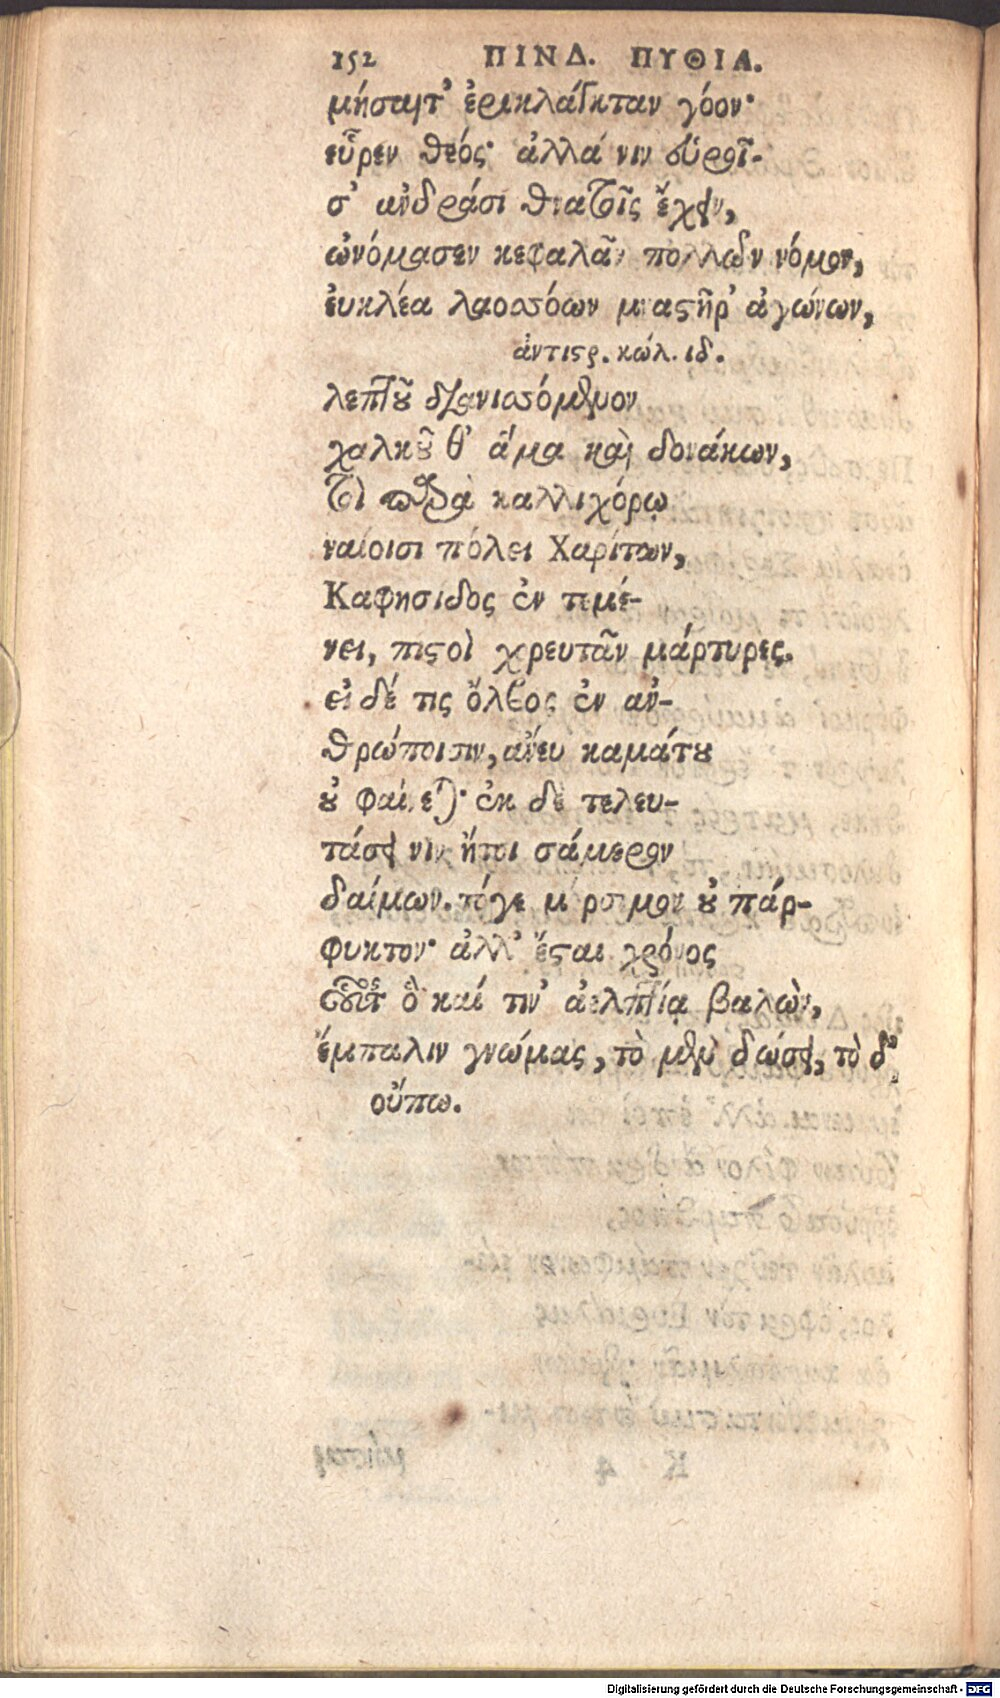 152 ΠΙΝΔ. ΠΥΘΙΑ.
μήσαιτ' ἐρικλάγκταν γόον·
εὗρεν θεός· ἀλλά νιν εὑροῖ-
σ' ἀνδράσι θνατοῖς ἔχειν,
ὠνόμασεν κεφαλᾶν πολλῶν νόμον,
ἐυκλέα λαοσσόων μναστῆρ' ἀγώνων,
ἀντιστρ. κώλ. ιδ.
λεπτοῦ διανισσόμενον
χαλκοῦ θ' ἅμα καὶ δονάκων,
τοὶ παρὰ καλλιχόρῳ
ναίοισι πόλει Χαρίτων,
Καφησιδος ἐν τεμέ-
νει, πιστοὶ χρευτᾶν μάρτυρες.
εἰ δέ τις ὄλβος ἐν ἀν-
θρώποισιν, ἄνευ καμάτου
οὐ φαίνεται· ἐκ δὲ τελευ-
τάσει νιν ἤτοι σάμερον
δαίμων. τόγε μόρσιμον οὐ πάρ-
φυκτον· ἀλλ' ἔσται χρόνος
οὗτος ὃ καί τιν' ἀελπτίᾳ βαλὼν,
ἔμπαλιν γνώμας, τὸ μὲν δώσει, τὸ δ'
οὔπω.
Digitalisierung gefördert durch die Deutsche Forschungsgemeinschaft - DFG